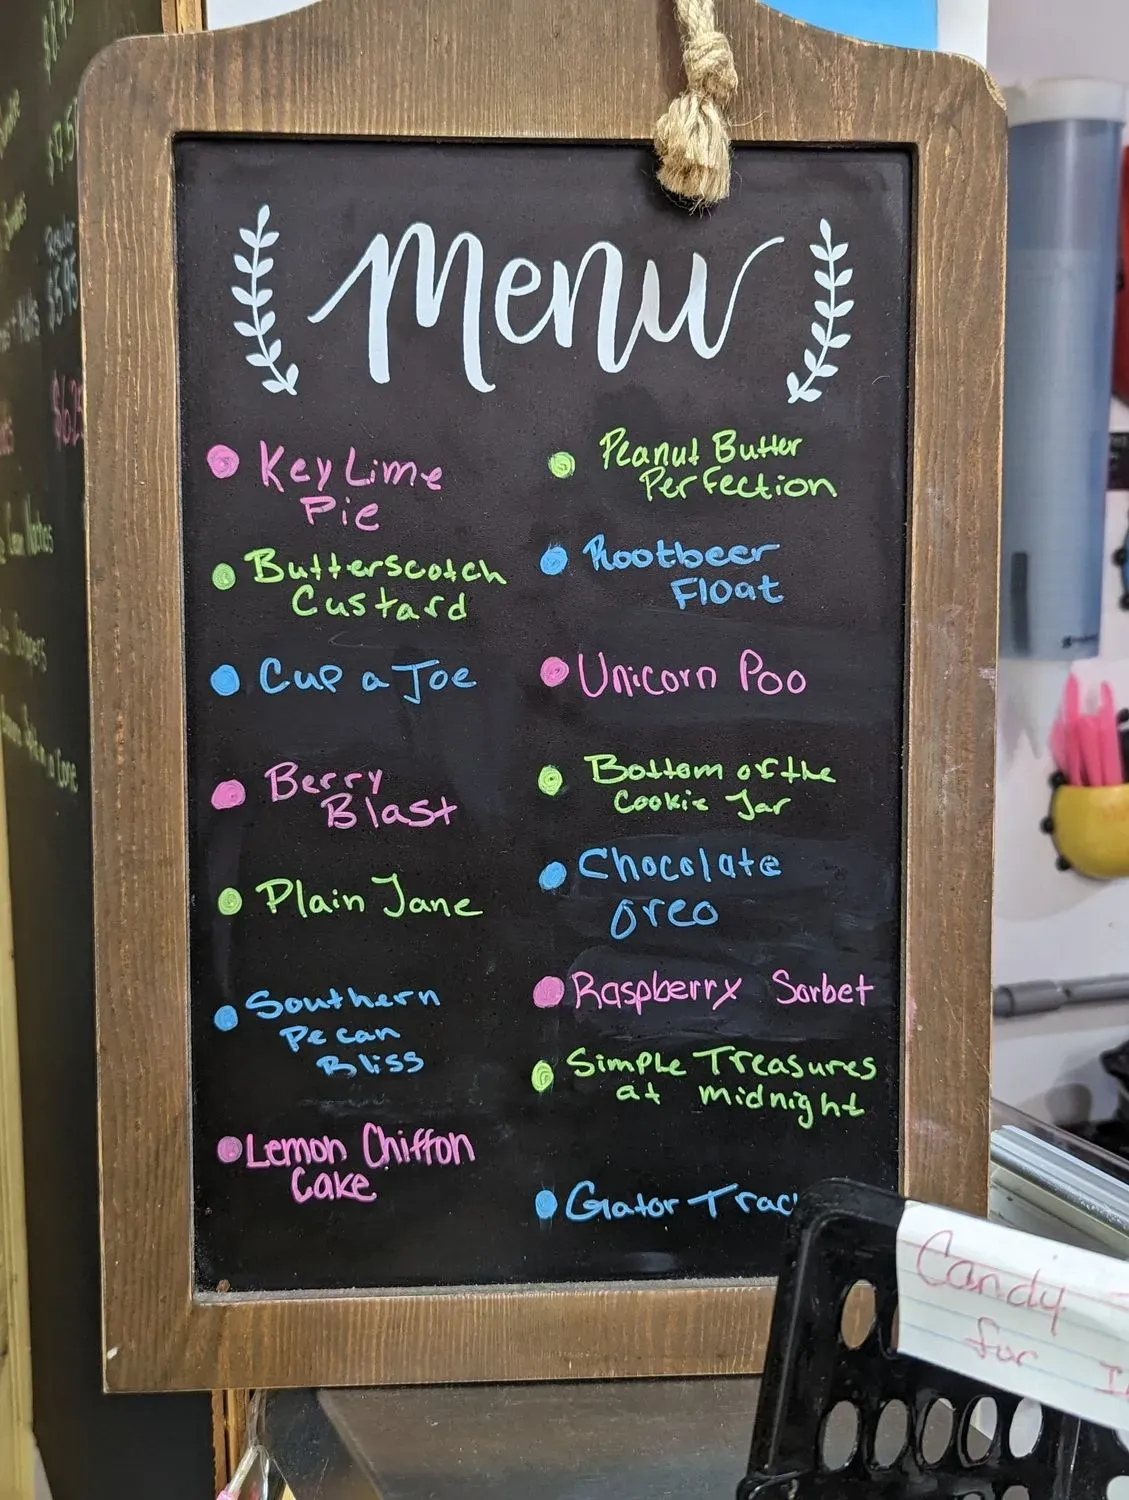 Menu
Key Lime
Pie
Butterscotch
Custard
Cup a Joe
Berry
Blast
Plain Jane
Southern
Pecan
Bliss
Lemon Chiffon
Cake
Peanut Butter
Perfection
Rootbeer
Float
Unicorn Poo
Bottom of the
Cookie Jar
Chocolate
Oreo
Raspberry Sorbet
Simple Treasures
at midnight
Gator Trac
Candy
for
$6.25